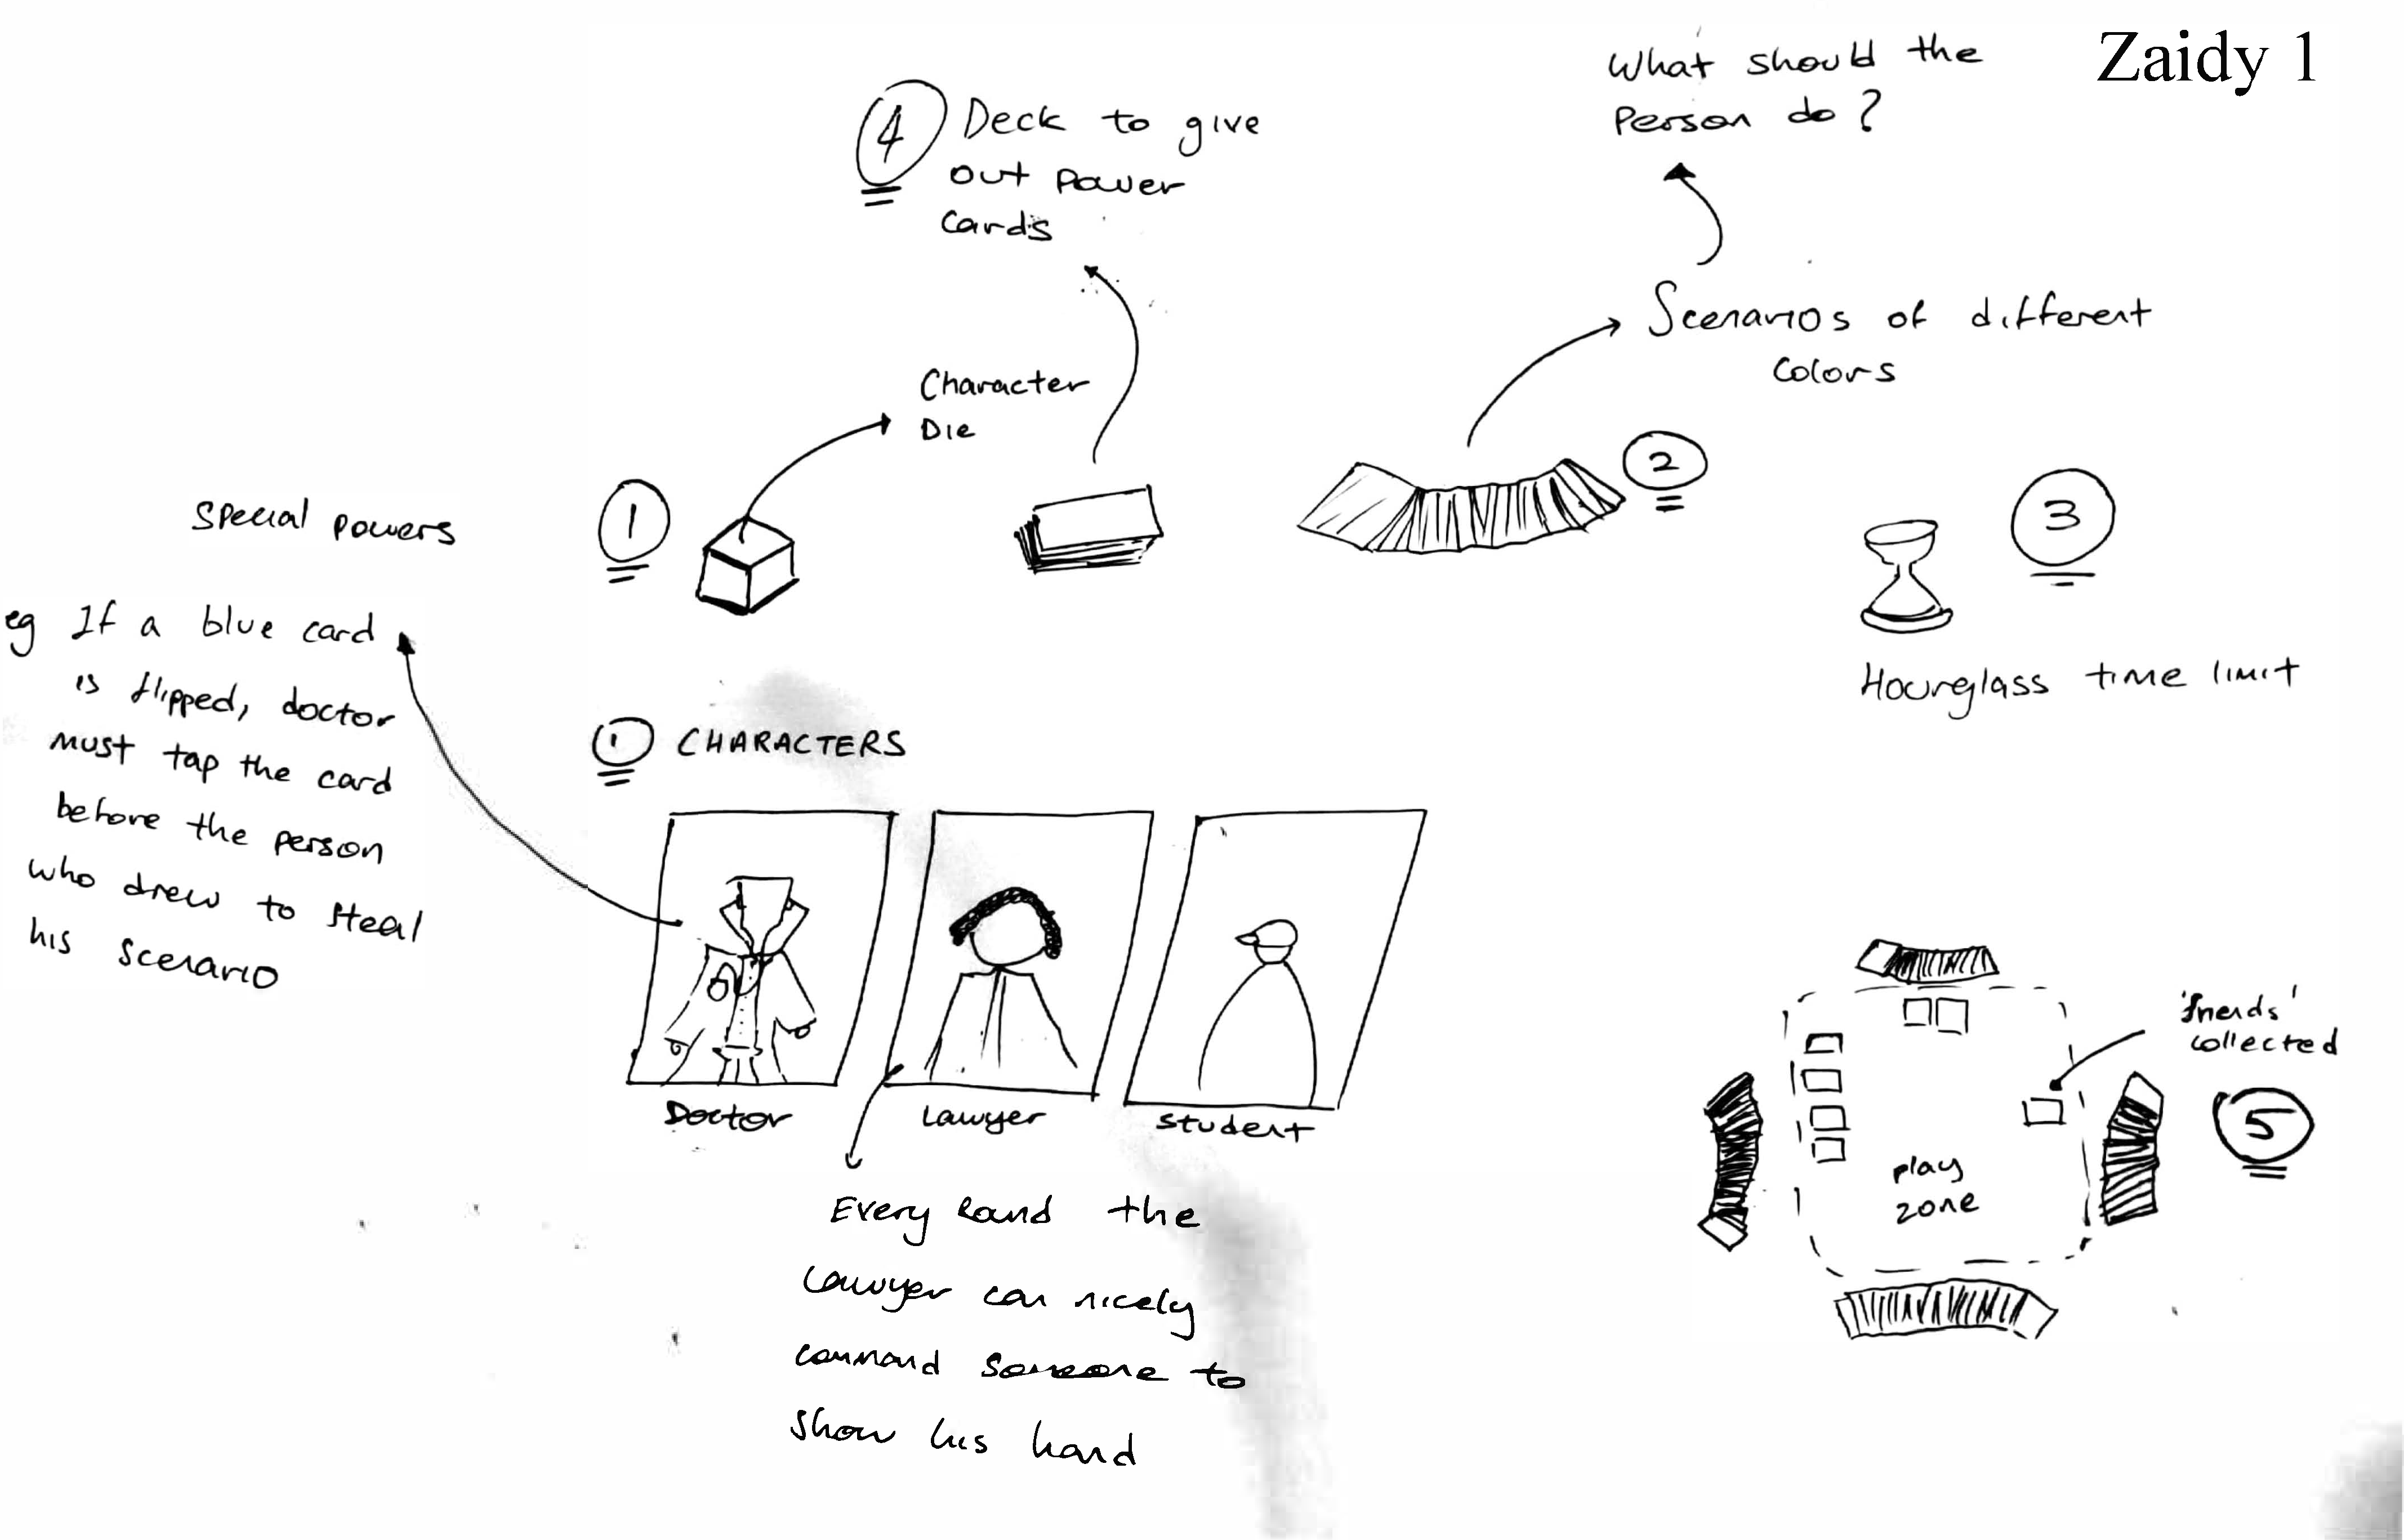 Zaidy 1
What should the
Person do?
4
Deck to give
out Power
Cards
Scenarios of different
Colors
Character
Die
2
3
1
Special Powers
Hourglass time limit
eg If a blue card
is flipped, doctor
must tap the card
before the person
who drew to steal
his scenario
1 CHARACTERS
Doctor
Lawyer
Student
'friends'
collected
5
play
zone
Every Round the
Lawyer can nicely
command someone to
show his hand